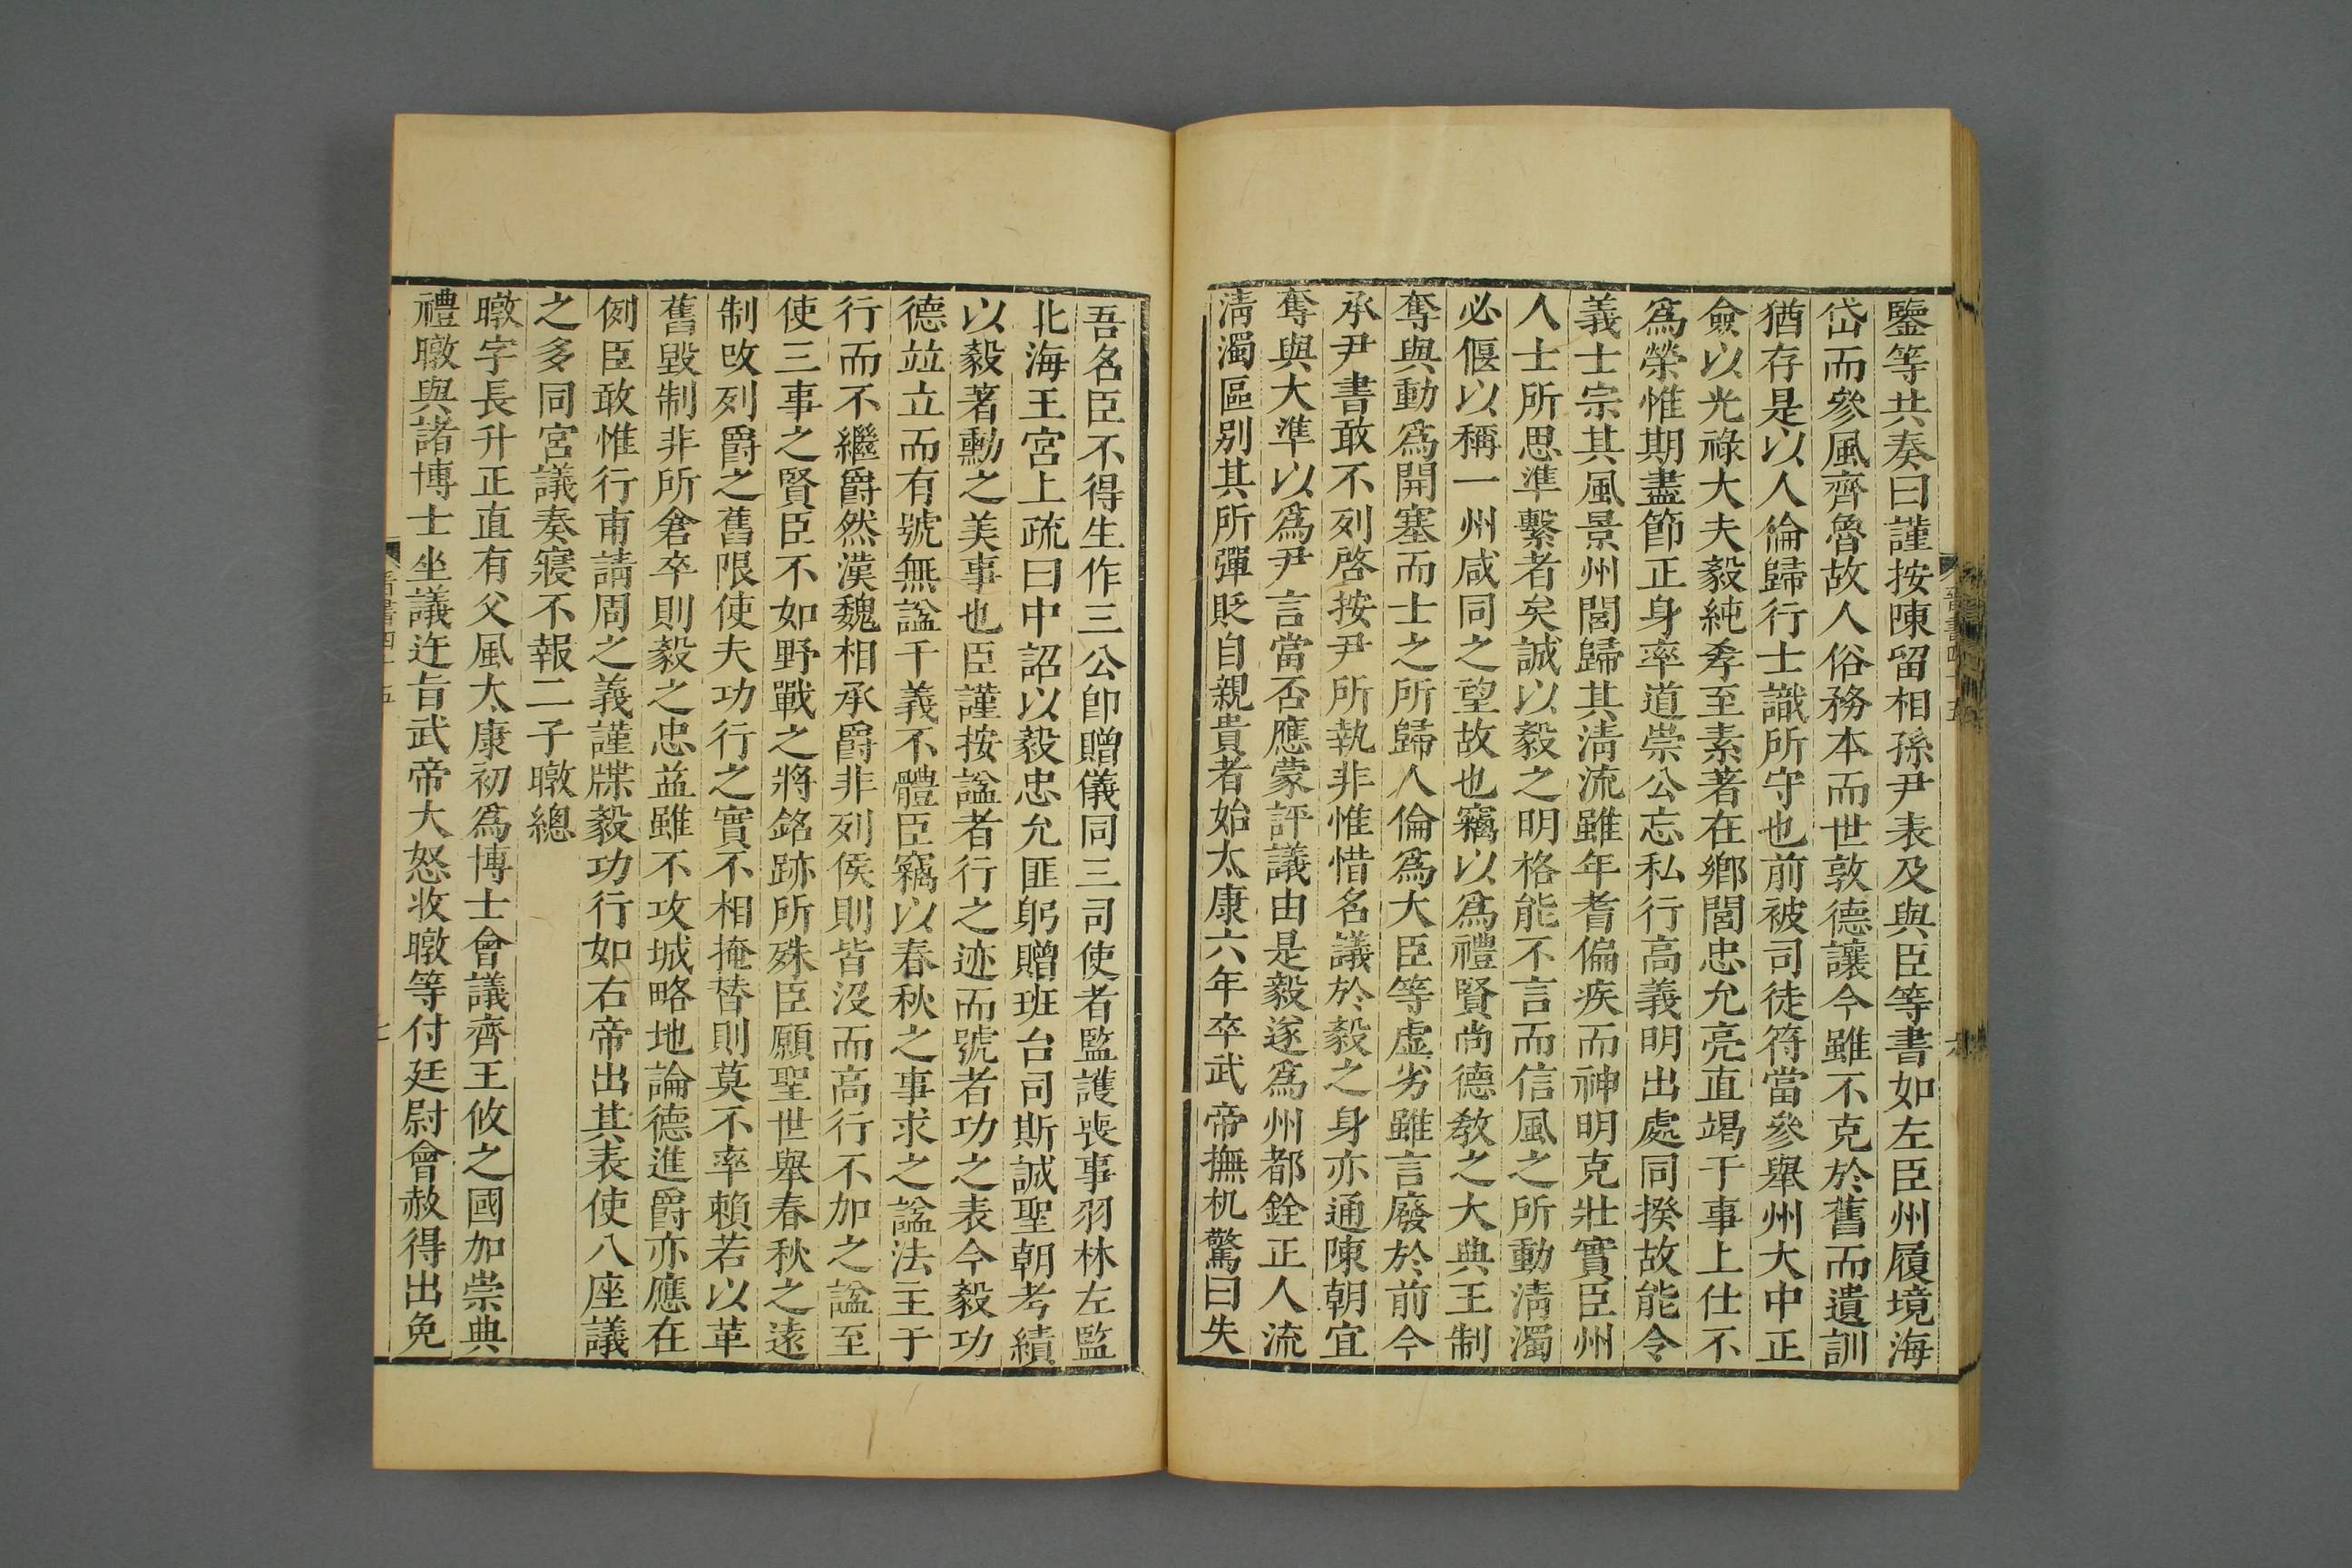 鑒等共奏曰謹按陳留相孫尹表及與臣等書如左臣州履境海
岱而參風齊魯故人俗務本而世敦德讓今雖不克於舊而遺訓
猶存是以人倫歸行士識所守也前被司徒符當參舉州大中正
僉以光祿大夫毅純孝至素著在鄉閭忠允亮直竭于事上仕不
爲榮惟期盡節正身率道崇公忘私行高義明出處同揆故能令
義士宗其風景州閭歸其淸流雖年耆偏疾而神明克壯實臣州
人士所思準繫者矣誠以毅之明格能不言而信風之所動淸濁
必偃以稱一州咸同之望故也竊以爲禮賢尚德敎之大典王制
奪與動爲開塞而士之所歸人倫爲大臣等虛劣雖言廢於前今
承尹書敢不列啓按尹所執非惟惜名議於毅之身亦通陳朝宜
奪與大準以爲尹言當否應蒙評議由是毅遂爲州都銓正人流
淸濁區別其所彈貶自親貴者始太康六年卒武帝撫机驚曰失
吾名臣不得生作三公卽贈儀同三司使者監護喪事羽林左監
北海王宮上疏曰中詔以毅忠允匪躬贈班台司斯誠聖朝考績
以毅著勳之美事也臣謹按諡者行之迹而號者功之表今毅功
德竝立而有號無諡于義不體臣竊以春秋之事求之諡法主于
行而不繼爵然漢魏相承爵非列侯則皆沒而高行不加之諡至
使三事之賢臣不如野戰之將銘跡所殊臣願聖世舉春秋之遠
制改列爵之舊限使夫功行之實不相掩替則莫不率賴若以革
舊毀制非所倉卒則毅之忠益雖不攻城略地論德進爵亦應在
例臣敢惟行甫請周之義謹牒毅功行如右帝出其表使八座議
之多同宮議奏寢不報二子暾總
暾字長升正直有父風太康初爲博士會議齊王攸之國加崇典
禮暾與諸博士坐議迕旨武帝大怒收暾等付廷尉會赦得出免
晉書四十五
七